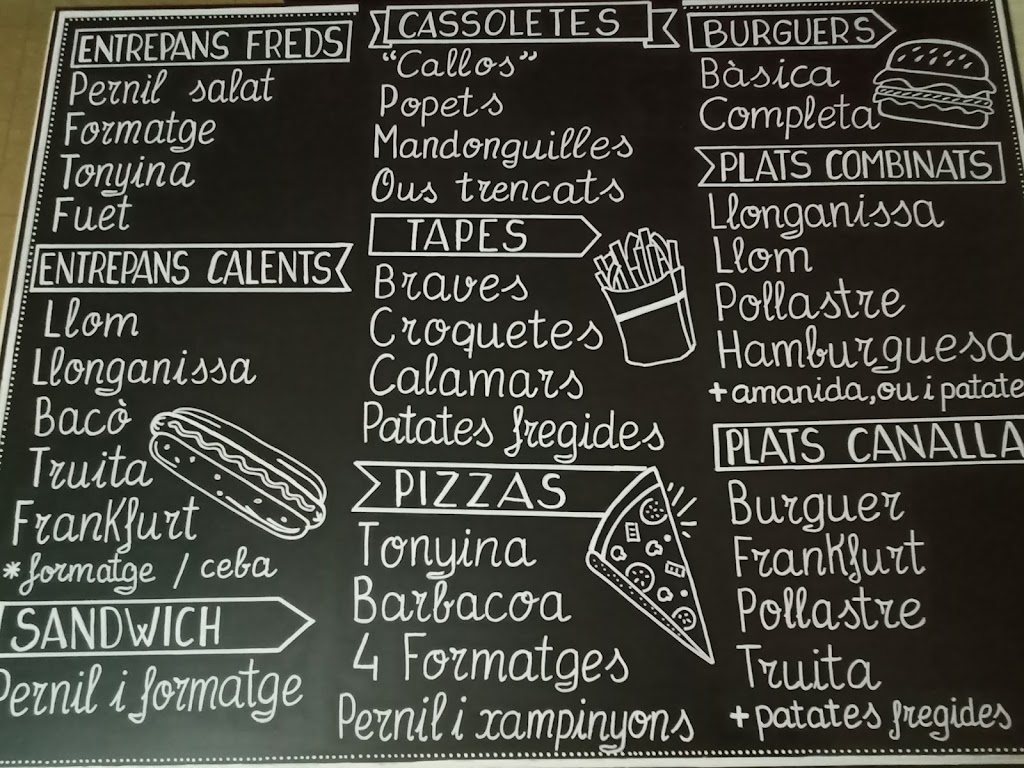 ENTREPANS FREDS
Pernil salat
Formatge
Tonyina
Fuet
ENTREPANS CALENTS
Llom
Llonganissa
Bacò
Truita
Frankfurt
*formatge / ceba
SANDWICH
Pernil i formatge
CASSOLETES
"Callos"
Popets
Mandonguilles
Ous trencats
TAPES
Braves
Croquetes
Calamars
Patates fregides
PIZZAS
Tonyina
Barbacoa
4 Formatges
Pernil i xampinyons
BURGUERS
Bàsica
Completa
PLATS COMBINATS
Llonganissa
Llom
Pollastre
Hamburguesa
+amanida, ou i patate
PLATS CANALLA
Burguer
Frankfurt
Pollastre
Truita
+patates fregides